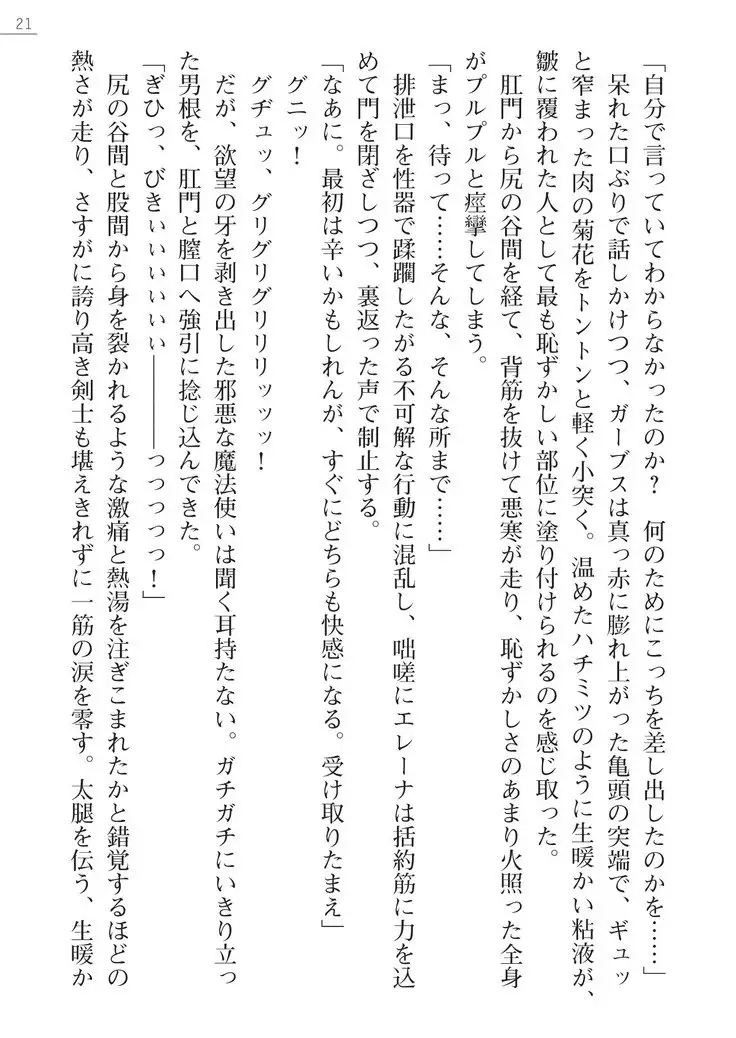 21
「自分で言っていてわからなかったのか? 何のためにこっちを差し出したのかを……」
呆れた口ぶりで話しかけつつ、ガーブスは真っ赤に膨れ上がった亀頭の突端で、ギュッ
と窄まった肉の菊花をトントンと軽く小突く。温めたハチミツのように生暖かい粘液が、
皺に覆われた人として最も恥ずかしい部位に塗り付けられるのを感じ取った。
肛門から尻の谷間を経て、背筋を抜けて悪寒が走り、恥ずかしさのあまり火照った全身
がプルプルと痙攣してしまう。
「まっ、待って……そんな、そんな所まで……」
排泄口を性器で蹂躙したがる不可解な行動に混乱し、咄嗟にエレーナは括約筋に力を込
めて門を閉ざしつつ、裏返った声で制止する。
「なあに。最初は辛いかもしれんが、すぐにどちらも快感になる。受け取りたまえ」
グニッ!
グヂュッ、グリグリグリリリッッッ!
だが、欲望の牙を剥き出した邪悪な魔法使いは聞く耳持たない。ガチガチにいきり立っ
た男根を、肛門と膣口へ強引に捻じ込んできた。
「ぎひっ、びきぃぃぃぃぃぃ――――っっっっっ!」
尻の谷間と股間から身を裂かれるような激痛と熱湯を注ぎこまれたかと錯覚するほどの
熱さが走り、さすがに誇り高き剣士も堪えきれずに一筋の涙を零す。太腿を伝う、生暖か